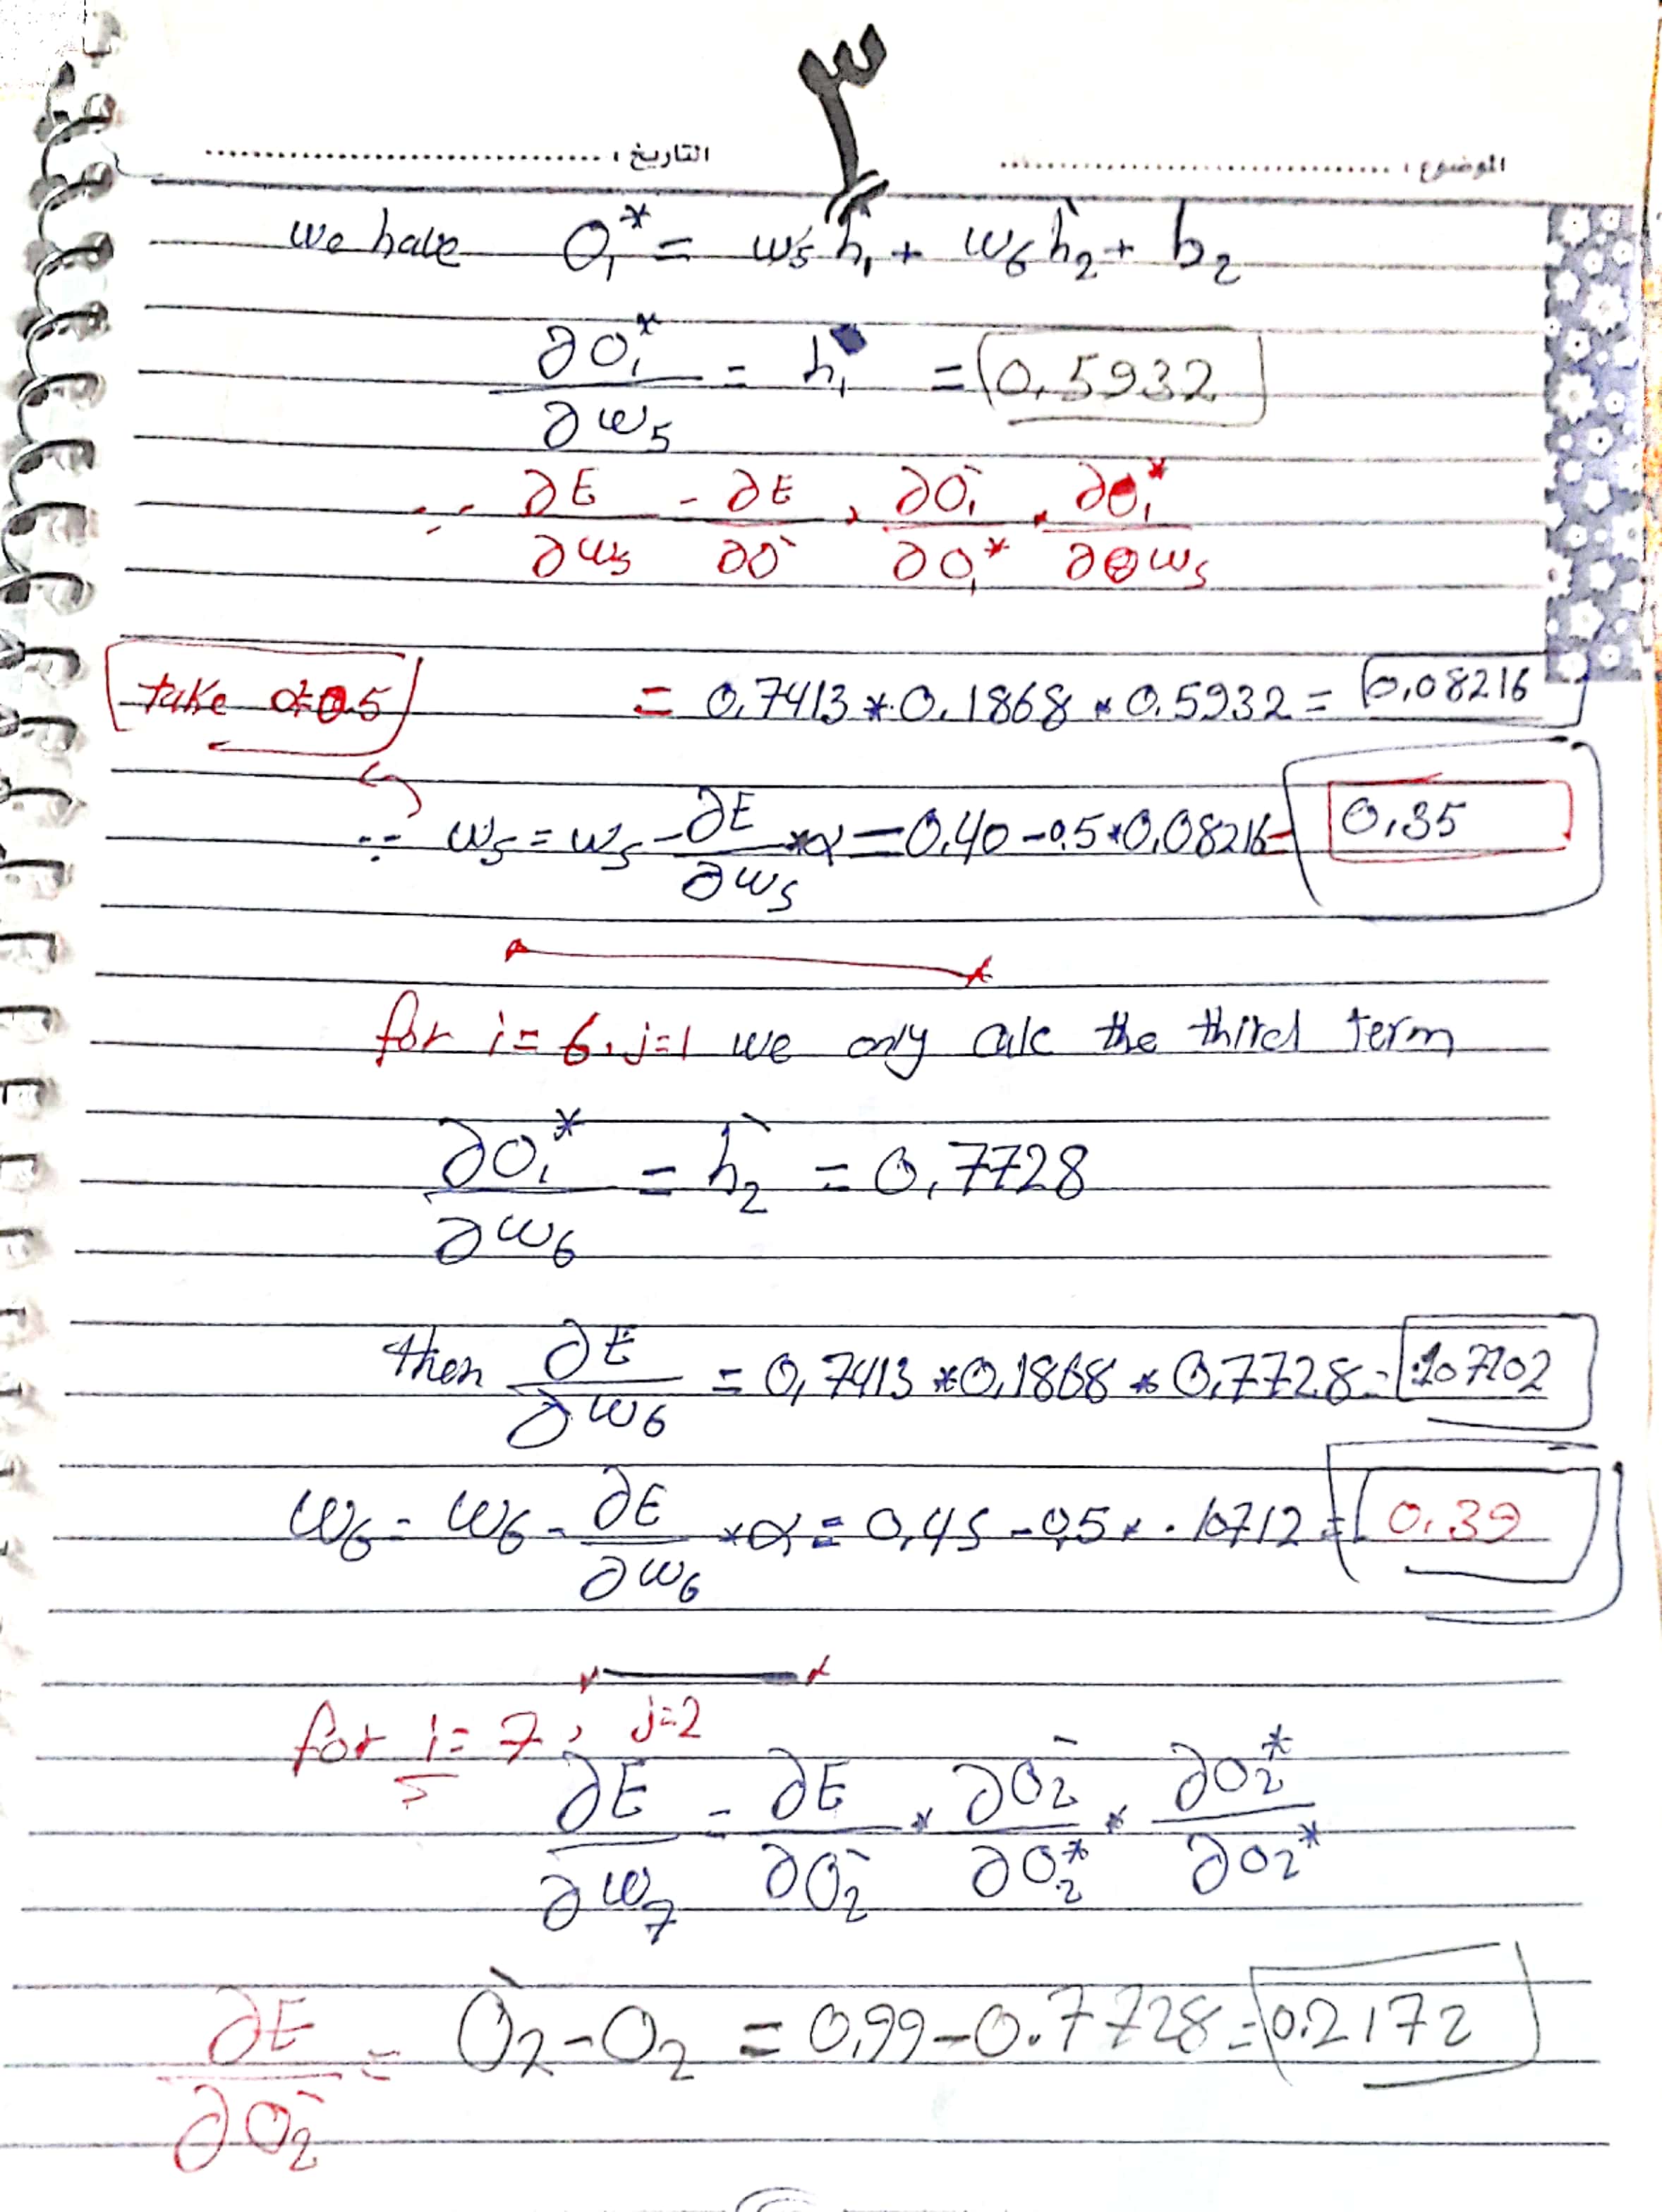 ٣
الموضوع : التاريخ :
we have O₁* = w5 h₁` + w6 h₂` + b2
∂O₁*/∂w5 = h₁` = 0.5932
∵ ∂E/∂w5 = ∂E/∂O` * ∂O₁`/∂O₁* * ∂O₁*/∂w5
take α=0.5 = 0.7413 * 0.1868 * 0.5932 = 0.08216
∵ w5 = w5 - ∂E/∂w5 * α = 0.40 - 0.5 * 0.08216 = 0.35
for i = 6, j=1 we only calc the third term
∂O₁*/∂w6 = h₂` = 0.7728
then ∂E/∂w6 = 0.7413 * 0.1868 * 0.7728 = .10702
w6 = w6 - ∂E/∂w6 * α = 0.45 - 0.5 * .10712 = 0.39
for i = 7, j=2
∂E/∂w7 = ∂E/∂O₂` * ∂O₂`/∂O₂* * ∂O₂*/∂O₂*
∂E/∂O₂` = O₂` - O₂ = 0.99 - 0.7728 = 0.2172